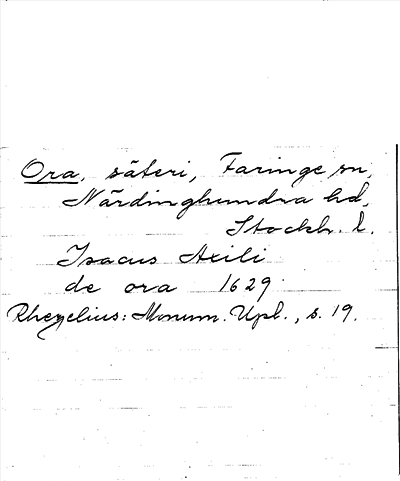 Ora, säteri, Faringe sn,
Närdinghundra hd,
Stockh. l.
Isacus Axili
de ora 1629
Rhezelius: Monum. Upl., s. 19.